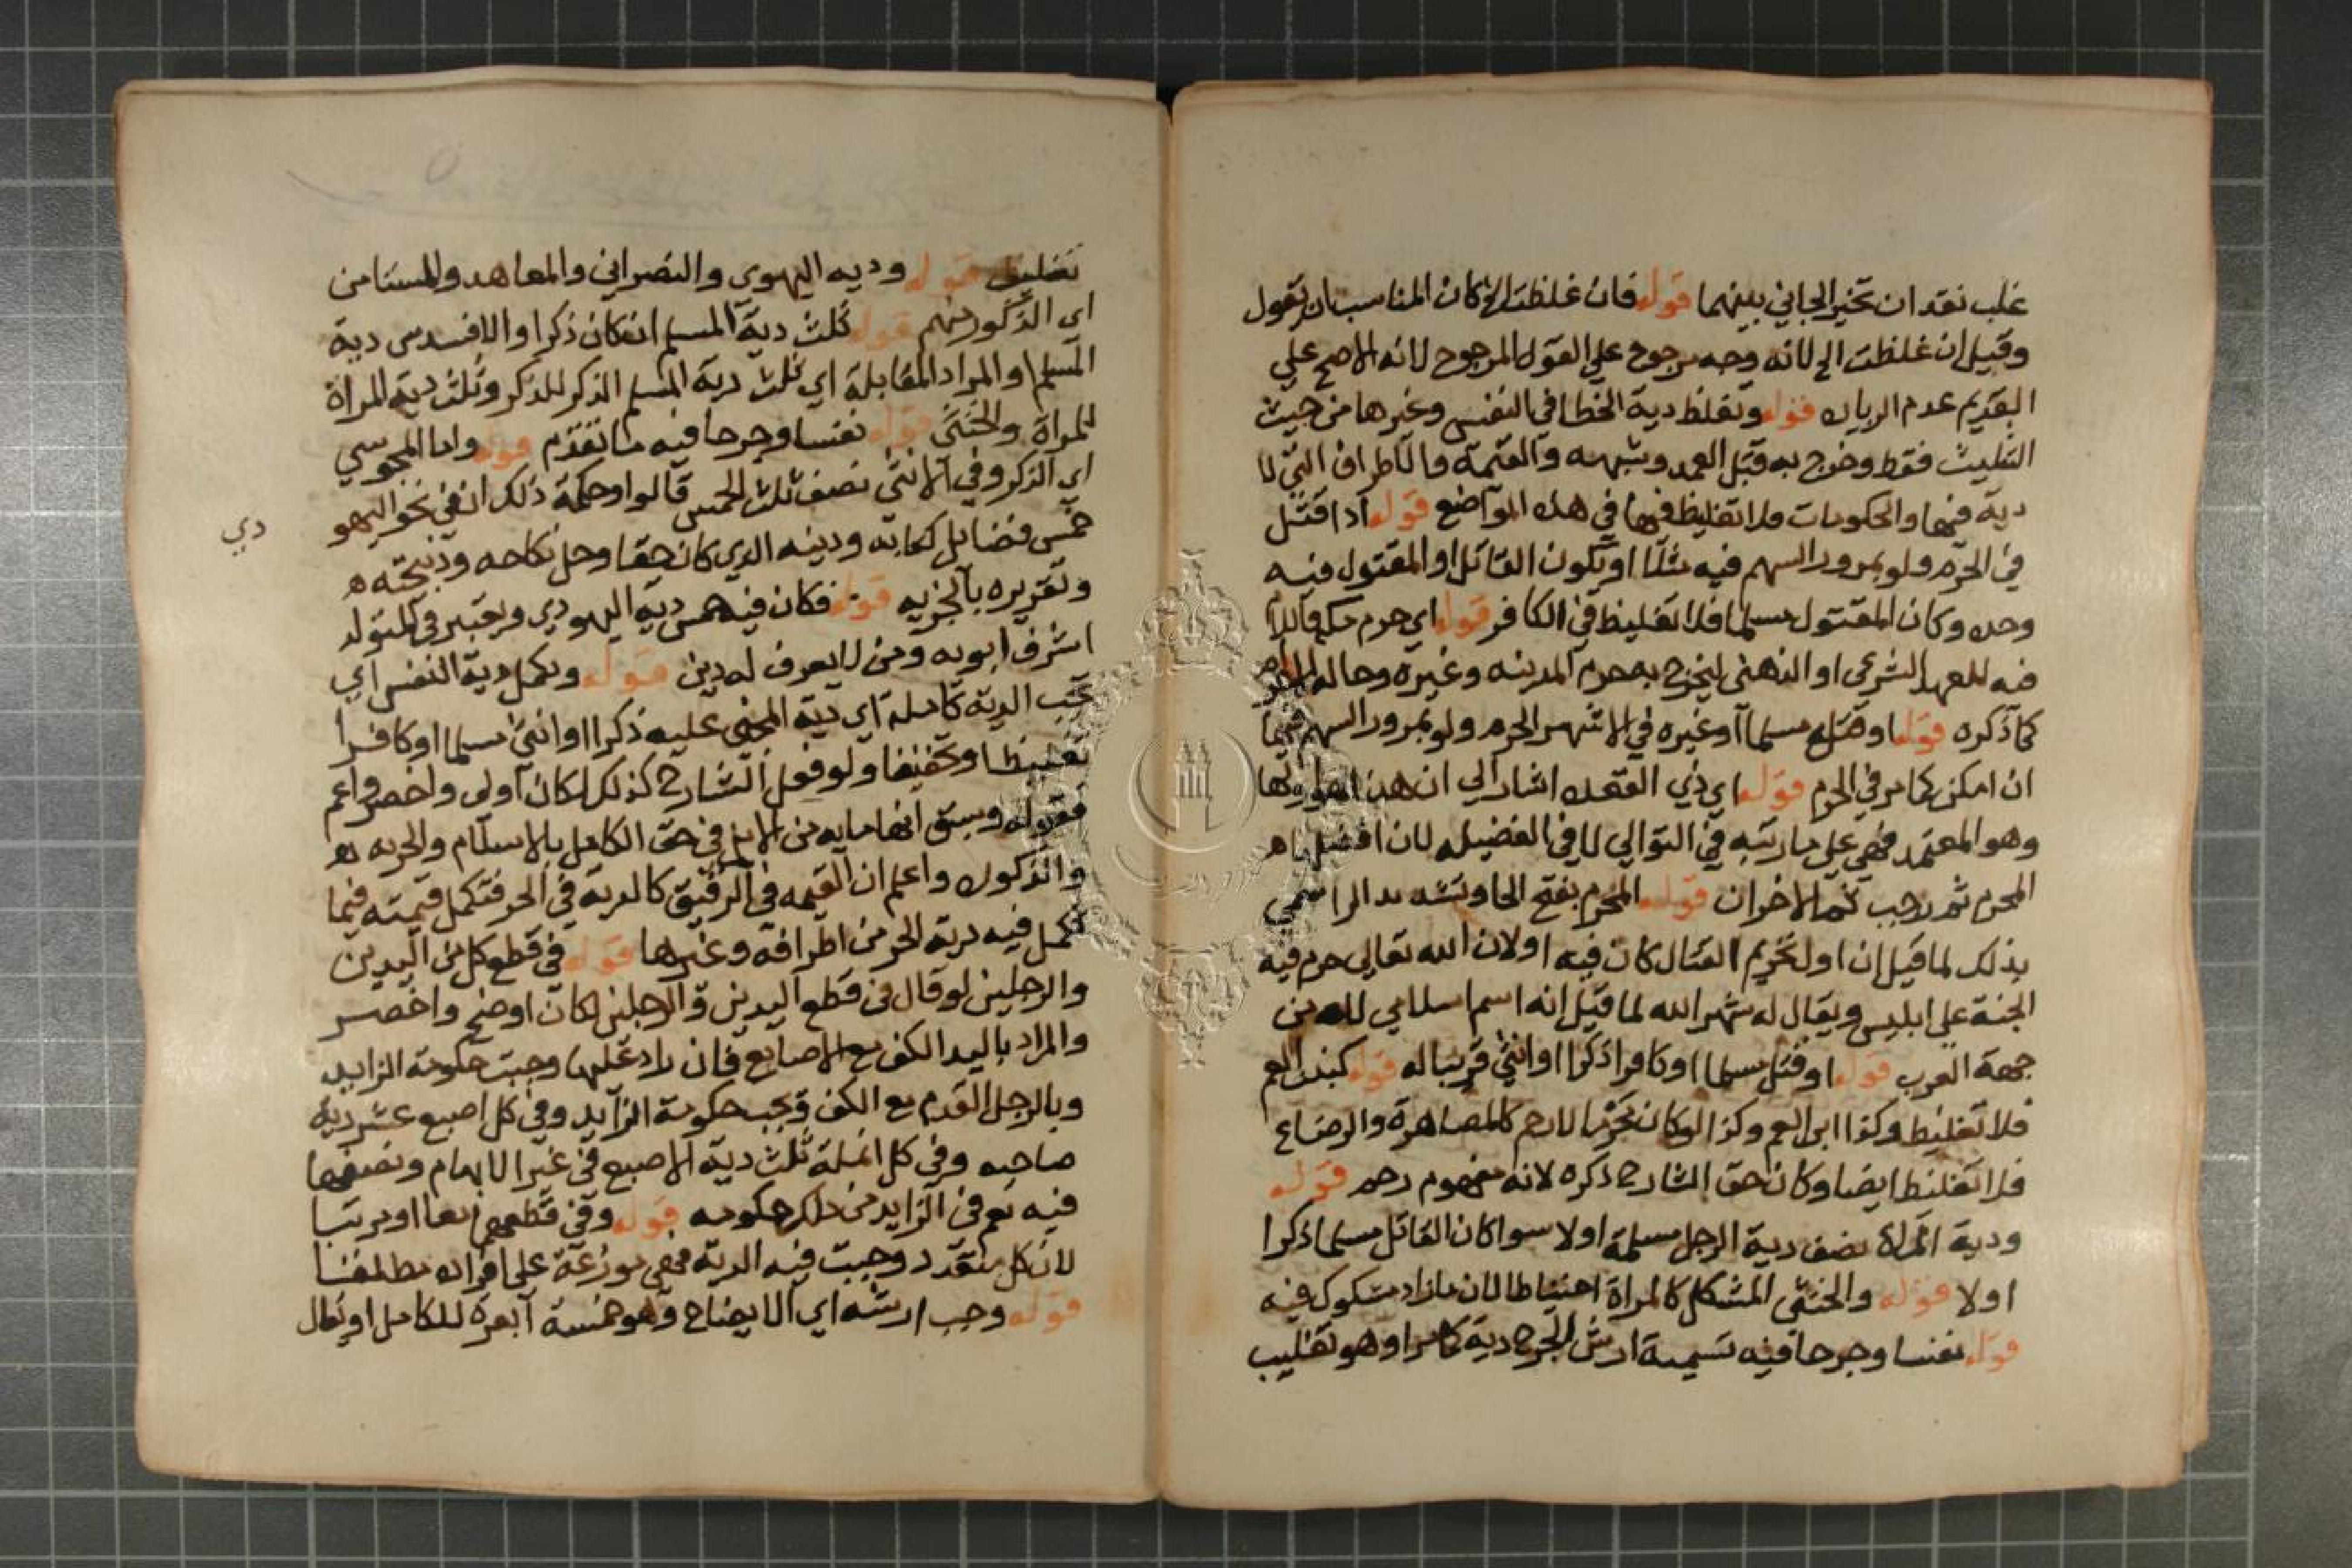 غلب نقدان تخير الجاني بينهما قوله فان غلظت الخ كان المناسب ان يقول
وقيل ان غلظت الخ لانه وجه مرجوح علي القول المرجوح لانه الاصح علي
القديم عدم الزيادة قوله وتغلظ دية الخطا في النفس وغيرها من حيث
التثليث فقط وخرج به قتل العمد وشبهه والقيمة والاطراف التي لا
دية فيها والحكومات فلا تغليظ فيها في هذه المواضع قوله اذا قتل
في الحرم ولو بمرور السهم فيه مثلا او بكون القاتل او المقتول فيه
وحده وكان المقتول مسلما فلا تغليظ في الكافر قوله اي حرم مكة فال
فيه للعهد الشرعي او الذهني ليخرج به حرم المدينه وغيره وحالة الاحرام
كما ذكره قوله او قتل مسلما او غيره في الاشهر الحرم ولو بمرور السهم فيها
ان امكن كما مر في الحرم قوله اي ذي القعدة اشار الي ان هذا اولها
وهو المعتمد فهي علي ما رتبه في التوالي لا في الفضيله لان افضلها
المحرم ثم رجب ثم الاخران قوله المحرم بفتح الحا وتشديد الرا سمي
بذلك لما قيل ان اول تحريم القتال كان فيه او لان الله تعالي حرم فيه
الجنة علي ابليس ويقال له شهر الله لما قيل انه اسم اسلامي لله من
جهة العرب قوله او قتل مسلما او كافرا ذكرا او انثي قريبا له قوله كبنت العم
فلا تغليظ وكذا ابن العم وكذا لو كان محرما لا رحم كالمصاهرة والرضاع
فلا تغليظ ايضا وكان حق الشارح ذكره لانه مفهوم رحم قوله
ودية المراة نصف دية الرجل مسلمة او لا سوا كان القاتل مسلما ذكرا
او لا قوله والخنثي المشكل كالمراة احتياطا لان ما زاد مشكوك فيه
قوله نفسا وجرحا فيه تسمية ارش الجرح دية كما مر او هو تغليب
تغليظ قوله ودية اليهوى والنصراني والمعاهد والمستامن
اي الذكور منهم قوله ثلث دية المسلم ان كان ذكرا والا فسدس دية
المسلم او المراد المقابلة اي ثلث دية المسلم الذكر للذكر وثلث دية المراة
للمراة والخنثي قوله نفسا وجرحا فيه ما تقدم قوله واما المجوسي
اي الذكر وفي الانثي نصف ثلث الخمس قالوا وحكمة ذلك ان في نحو اليهو
دي
خمس فضايل ككتابه ودينه الذي كان حقا وحل نكاحه وذبيحته
وتقريره بالجزيه قوله فكان فيه خمس دية اليهودي ويعتبر في المتولد
اشرف ابويه ومن لا يعرف له دين قوله وتكمل دية النفس اي
تجب الدية كاملة اي دية المجني عليه ذكرا او انثي مسلما او كافرا
تغليظا وتخفيفا ولو فعل الشارح كذلك لكان اولى واخصر واعم
فقوله وسبق انها مايه من الابل في حق الكامل بالاسلام والحريه
والذكورة واعلم ان القيمه في الرقيق كالدية في الحر فتكمل قيمته فيما
تكمل فيه دية الحر من اطرافه وغيرها قوله في قطع كل من اليدين
والرجلين لو قال في قطع اليدين والرجلين لكان اوضح واخصر
والمراد باليد الكف مع الاصابع فان زاد عليها وجبت حكومة الزايد
وبالرجل القدم مع الكف وتجب حكومة الزايد وفي كل اصبع عشر دية
صاحبه وفي كل انملة ثلث دية الاصبع في غير الابهام ونصفها
فيه نعم في الزايد من ذلك حكومه قوله وفي قطعهما معا او مرتبا
لان كل متعدد وجبت فيه الدية فهي موزعة علي افراده مطلقا
قوله وجب ارشه اي الايضاح وهو خمسة ابعرة للكامل او يقال